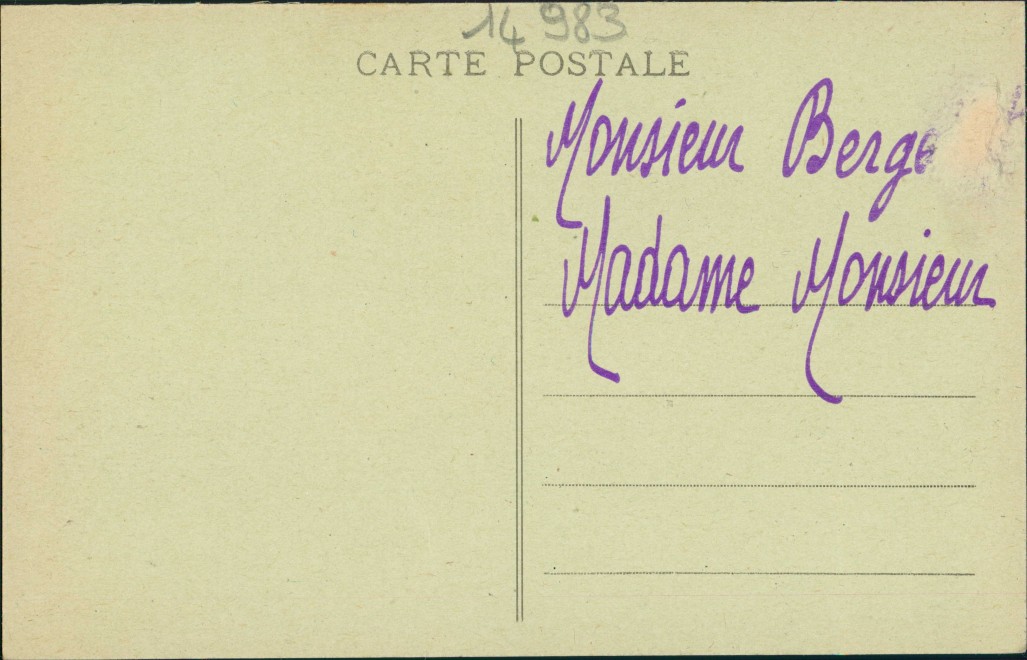 14 983
CARTE POSTALE
Monsieur
Madame Monsieur